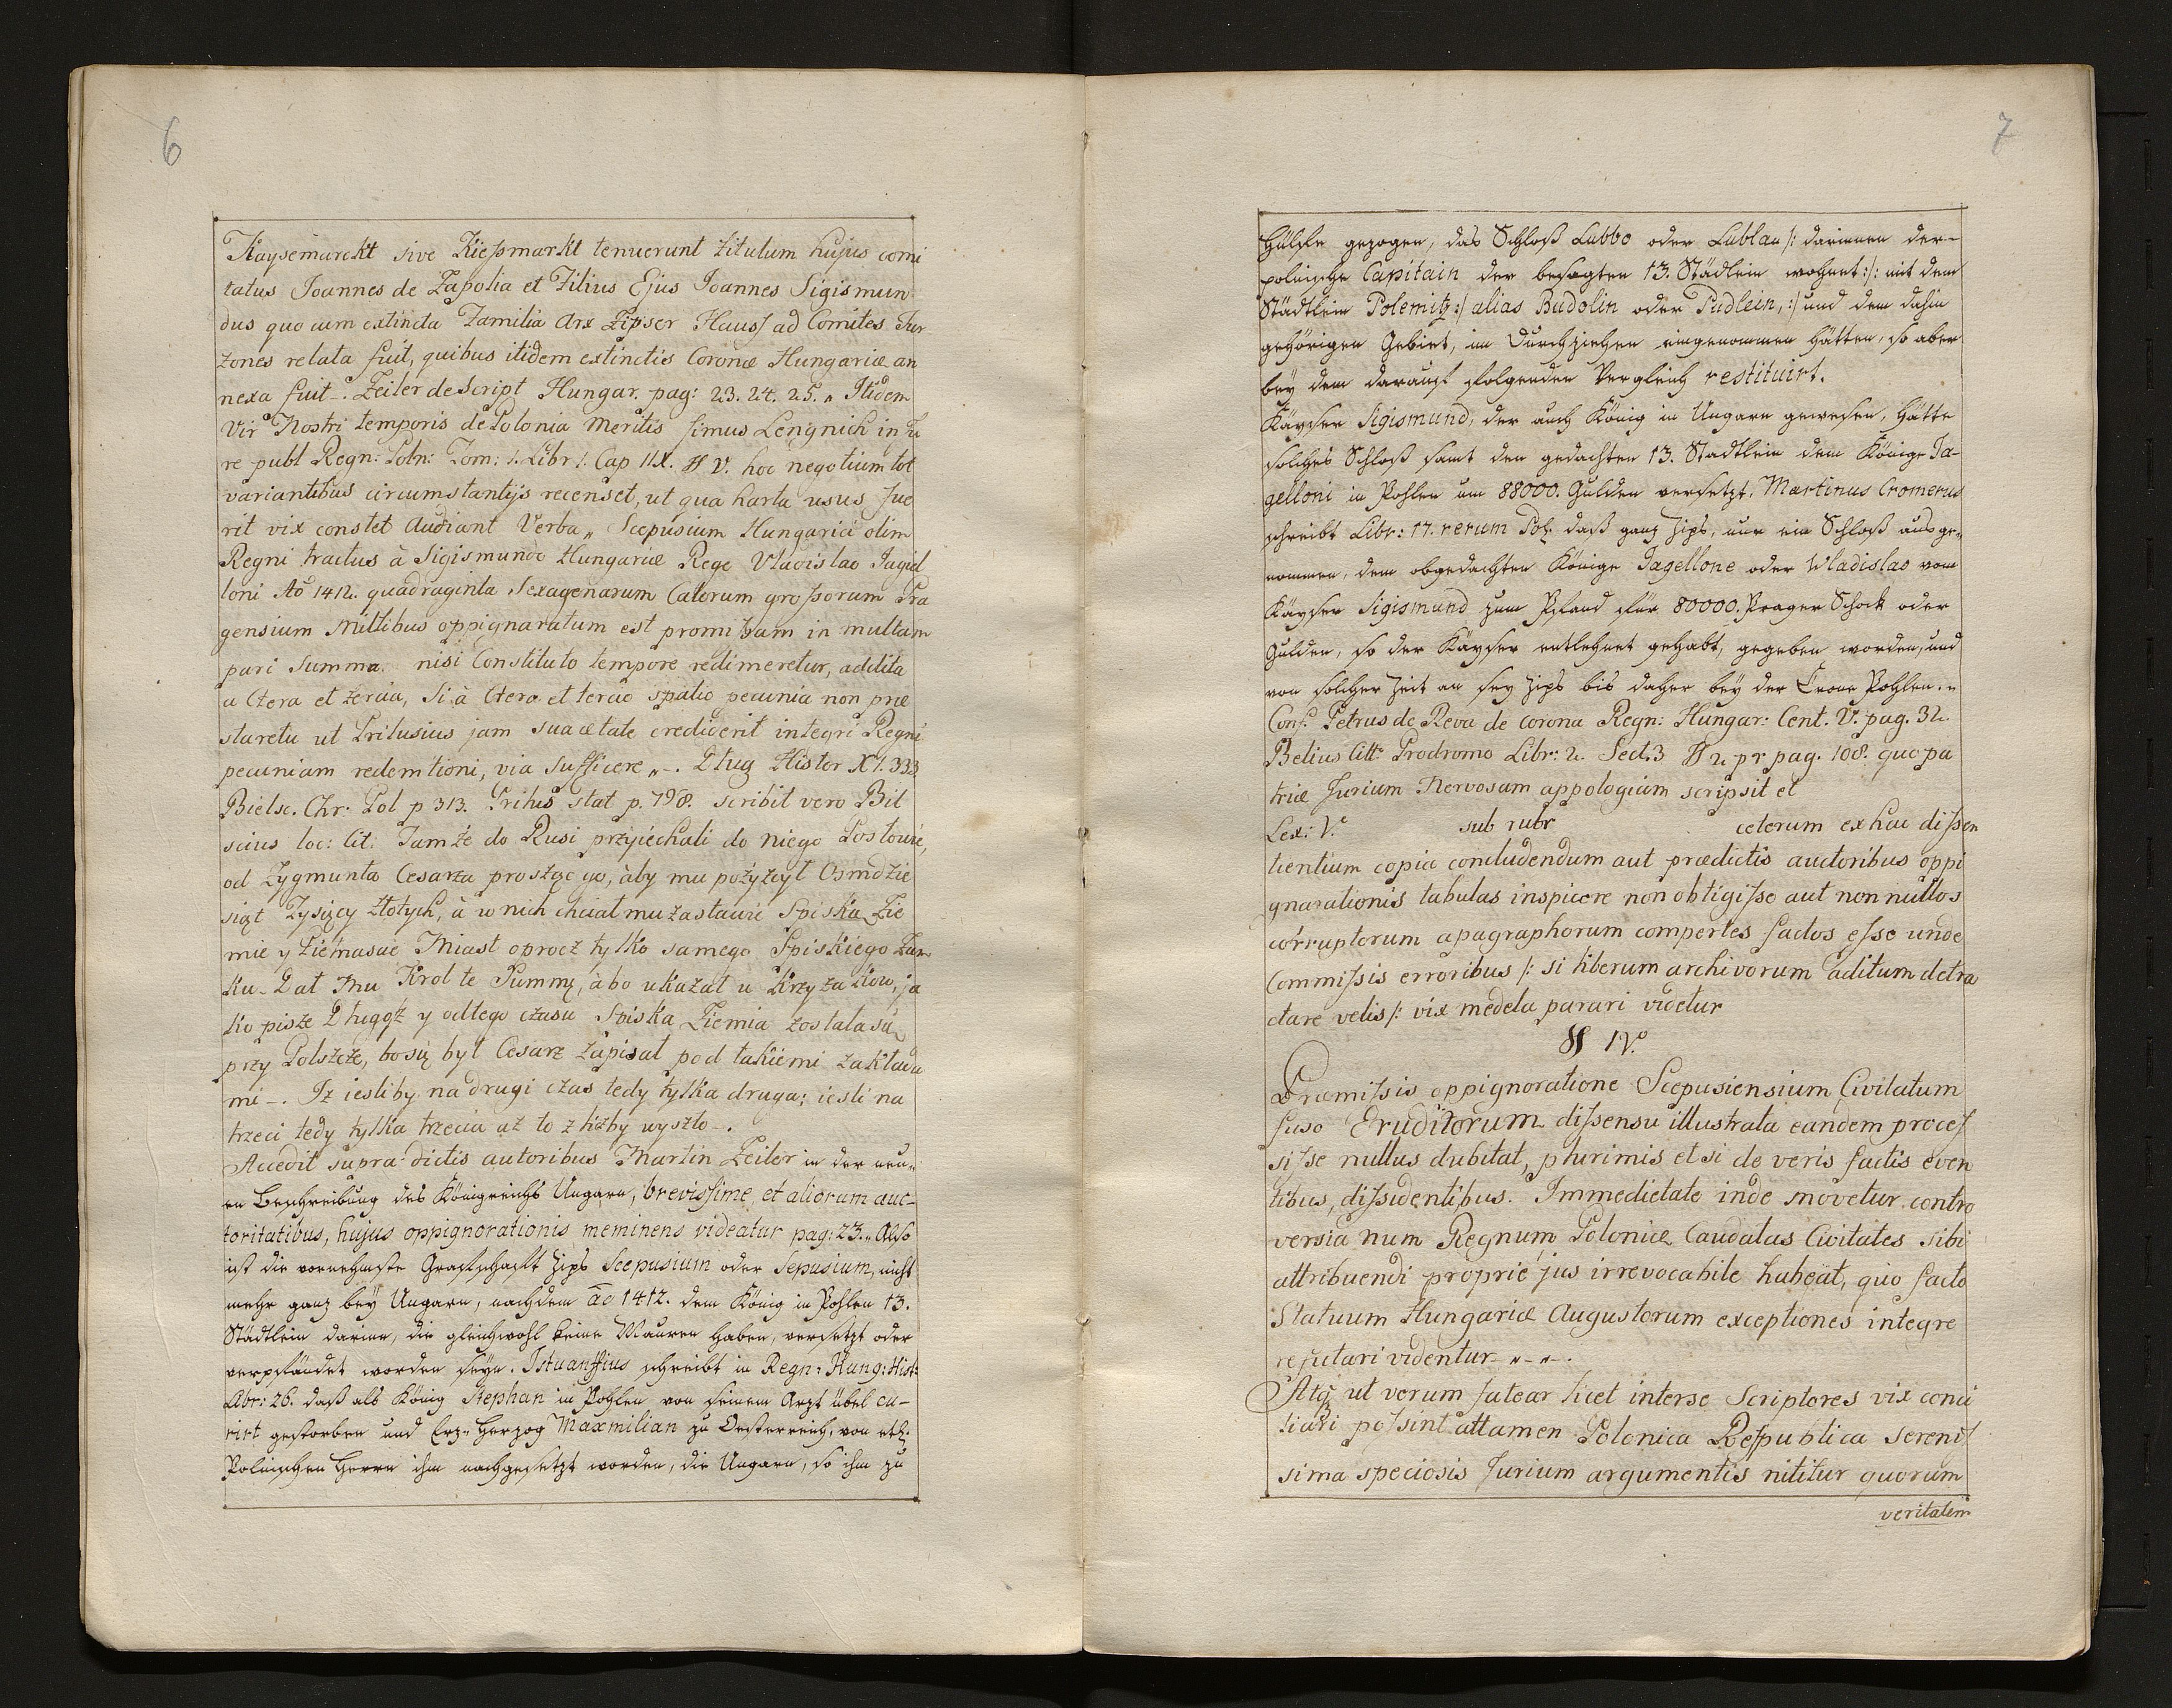 6
Kaysemarckt sive Kießmarkt tenuerunt titulum hujus comi
tatus Joannes de Zapolia et Filius Ejus Joannes Sigismun
dus quo cum extincta Familia Arx Zipser Hauss ad Comites Tur
zones relata fuit, quibus itidem extinctis Coronæ Hungariæ an
nexa fuit -. Zeiler de Script Hungar. pag: 23. 24. 25. „ Itidem
Vir Nostri temporis de Polonia Meritis simus Lengnich in Ju
re publ Regn: Poln: Tom: 1. Libr 1. Cap IIX. § V. hoc negotium tot
variantibus circumstantijs recenset, ut qua harta usus fue
rit vix constet Audiant Verba „ Scepusium Hungarici olim
Regni tractus à Sigismundo Hungariæ Rege Vladislao Jagiel
loni Aō 1412. quadraginta Sexagenarum Latorum grossorum Pra
gensium Millibus oppignaratum est promissam in multam
pari Summa. nisi Constituto tempore redimeretur, addita
a ctera et tercia, Si à Ctero et tercio spatio pecunia non præ
staretu ut Prilusius jam sua ætate crediderit integri Regni
pecuniam redemtioni, via sufficere „ -. Dług Histor XI. 333
Bielsc. Chr. Pol p 313. Prilus stat p. 798. scribit vero Biel
scius loc: Cit: Tamże do Rusi przyiechali do niego Posłowie,
od Zygmunta Cesarza prosząc go, àby mu pożyzcył Osmdzie
siąt Tysięcy złotych, à w nich chciał mu zastawić Spiską Zie
mie y Ziemasue Miast oprocz tylko samego Spiskiego Zam
ku - Dał Mu Krol te Summę, àbo ukazał u Krzyzakow, ja
ko pisze Długosz y odtego czasu Spiska Ziemia zostala sie
przy Polszcze, bosię był Cesarz zapisał pod takiemi zakłada
mi -. Iz iesliby na drugi czas tedy tylka druga; iesli na
trzeci tedy tylka trzecia aż to z liżby wyszło -.
Accedit supra dictis autoribus Martin Zeiler in der neu„
en Beschreibung des Königreichs Ungarn, brevissime, et aliorum auc-
toritatibus, hujus oppignorationis meminens videatur pag: 23. „ Also
ist die vornehmste Graffschafft Zips Scepusium oder Sepusium, nicht
mehr ganz bey Ungarn, nachdem āo 1412. dem König in Pohlen 13.
Städtlein darinn, die gleichwohl keine Mauren haben, versetzt oder
verpfändet worden seyn. Istuanffius schreibt in Regn: Hung: Hist:
Libr: 26. daß als König Stephan in Pohlen von seinem Arzt übel cu-
rirt gestorben und Erz„ Herzog Maxmilian zu Oesterreich, von etl:
Polnischen Herrn ihm nachgesetzt worden, die Ungarn, so ihm zu
7
Hülffe gezogen, das Schloß Lubbo oder Lublau /: darinnen der-
polnische Capitain der besagten 13. Städlein wohnet :/: mit dem
Städtlein Polemitz :/ alias Budolin oder Pudlein, :/ und dem dahin
gehörigen Gebiet, im Durchziehen eingenommen hätten, so aber
bey dem darauff folgenden Vergleich restituirt.
Käyser Sigismund, der auch König in Ungarn gewesen, hätte
solches Schloß samt den gedachten 13. Stadtlein dem Könige Ja-
gelloni in Pohlen um 88000. Gulden versetzt. Martinus Cromerus
schreibt Libr: 17. rerum Pol: daß ganz Zips, nur ein Schloß ausge„
nommen, dem obgedachten Könige Jagellone oder Wladislao vom
Käyser Sigismund zum Pfand für 80000. Prager Schock oder
Gulden, so der Käyser entlehnet gehabt, gegeben worden, und
von solcher Zeit an sey Zips bis daher bey der Crone Pohlen. „
Conf: Petrus de Reva de corona Regn: Hungar: Cent. V. pag. 32.
Belius Citt: Prodromo Libr: 2. Sect. 3 § 2 pr pag. 108. quo pa
triæ Jurium Nervosam appologiam scripsit et
Lex: V.c sub rubr ceterum ex hac dissen
tientium copia concludendum aut prædictis auctoribus oppi
gnarationis tabulas inspicere non obtigisse aut non nullos
corruptorum apagraphorum compertes factos esse unde
Commissis erroribus /: si liberum archivorum aditum detra
ctare velis /: vix medela parari videtur
§ IV.
Præmissis oppignoratione Scepusiensium Civitatum
fuso Eruditorum dissensu illustrata eandem proces
sisse nullus dubitat, plurimis etsi de veris factis even
tibus, dissidentibus. Immedietate inde movetur contro
versia num Regnum Poloniæ Laudatas Civitates sibi
attribuendi proprie jus irrevocabile habeat, quo facto
Statuum Hungariæ Augustorum exceptiones integre
refutari videntur - „ - „ -.
Atq; ut verum fatear licet interse Scriptores vix conci
liari possint attamen Polonica Respublica Serenis
sima speciosis Jurium argumentis nititur quorum
veritatem